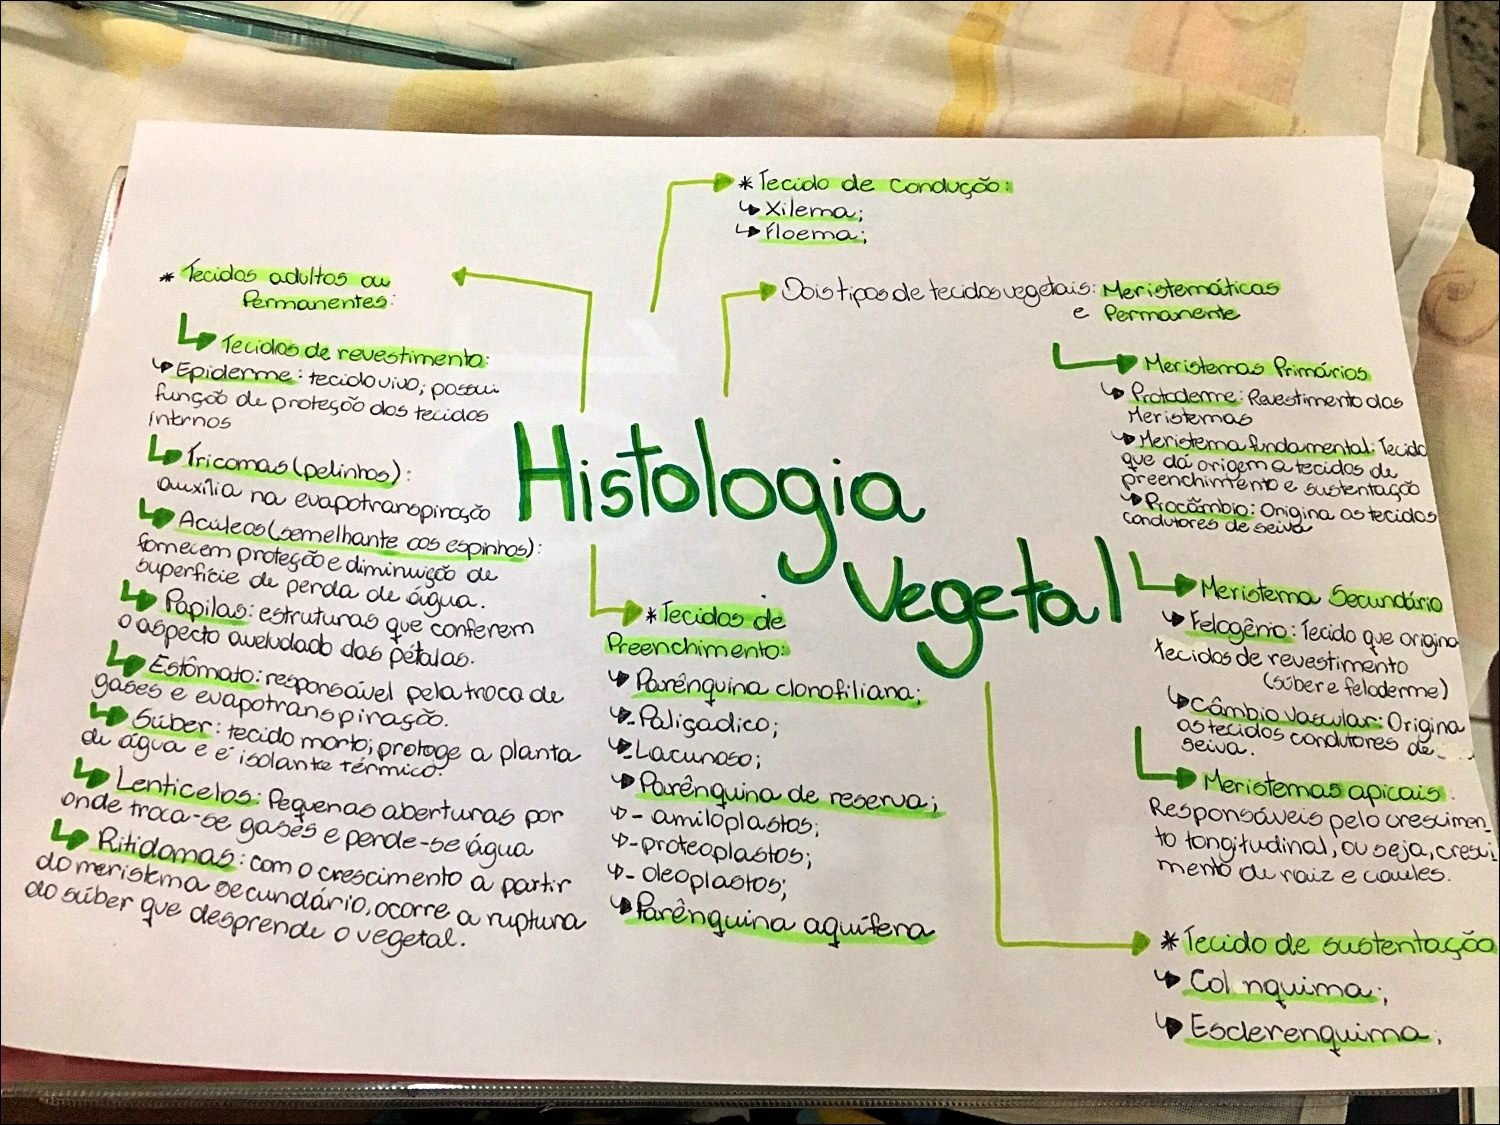 * Tecido de condução:
Xilema;
Floema;
* Tecidos adultos ou
Permanentes:
Tecidos de revestimento:
Epiderme: tecido vivo; possui
função de proteção dos tecidos
internos
Tricomas (pelinhos):
auxília na evapotranspiração
Acúleos (semelhante aos espinhos):
fornecem proteção e diminuição de
superfície de perda de água.
Papilas: estruturas que conferem
o aspecto aveludado das pétalas.
Estômato: responsável pela troca de
gases e evapotranspiração.
Súber: tecido morto; protoge a planta
de água e é isolante térmico.
Lenticelos: Pequenas aberturas por
onde troca-se gases e perde-se água
Ritidomas: com o crescimento a partir
do meristema secundário, ocorre a ruptura
do súber que desprende o vegetal.
Histologia
Vegetal
* Tecidos de
Preenchimento:
Parênquina clorofiliana;
- Paliçadico;
- Lacunoso;
Parênquina de reserva;
- amiloplastos;
- proteoplastos;
- oleoplastos;
Parênquina aquífera
Dois tipos de tecidos vegetais: Meristemáticas
e Permanente
Meristemas Primários
Protoderme: Revestimento dos
Meristemas
Meristema fundamental: Tecido
que dá origem a tecidos de
preenchimento e sustentação
Procâmbio: Origina os tecidos
condutores de seiva
Meristema Secundário
Felogênio: Tecido que origina
tecidos de revestimento
(súber e feloderme)
Câmbio vascular: Origina
os tecidos condutores de
seiva.
Meristemas apicais:
Responsáveis pelo crescimen-
to longitudinal, ou seja, cresci-
mento de raiz e caules.
* Tecido de sustentação
Col nquima;
Esclerenquima;